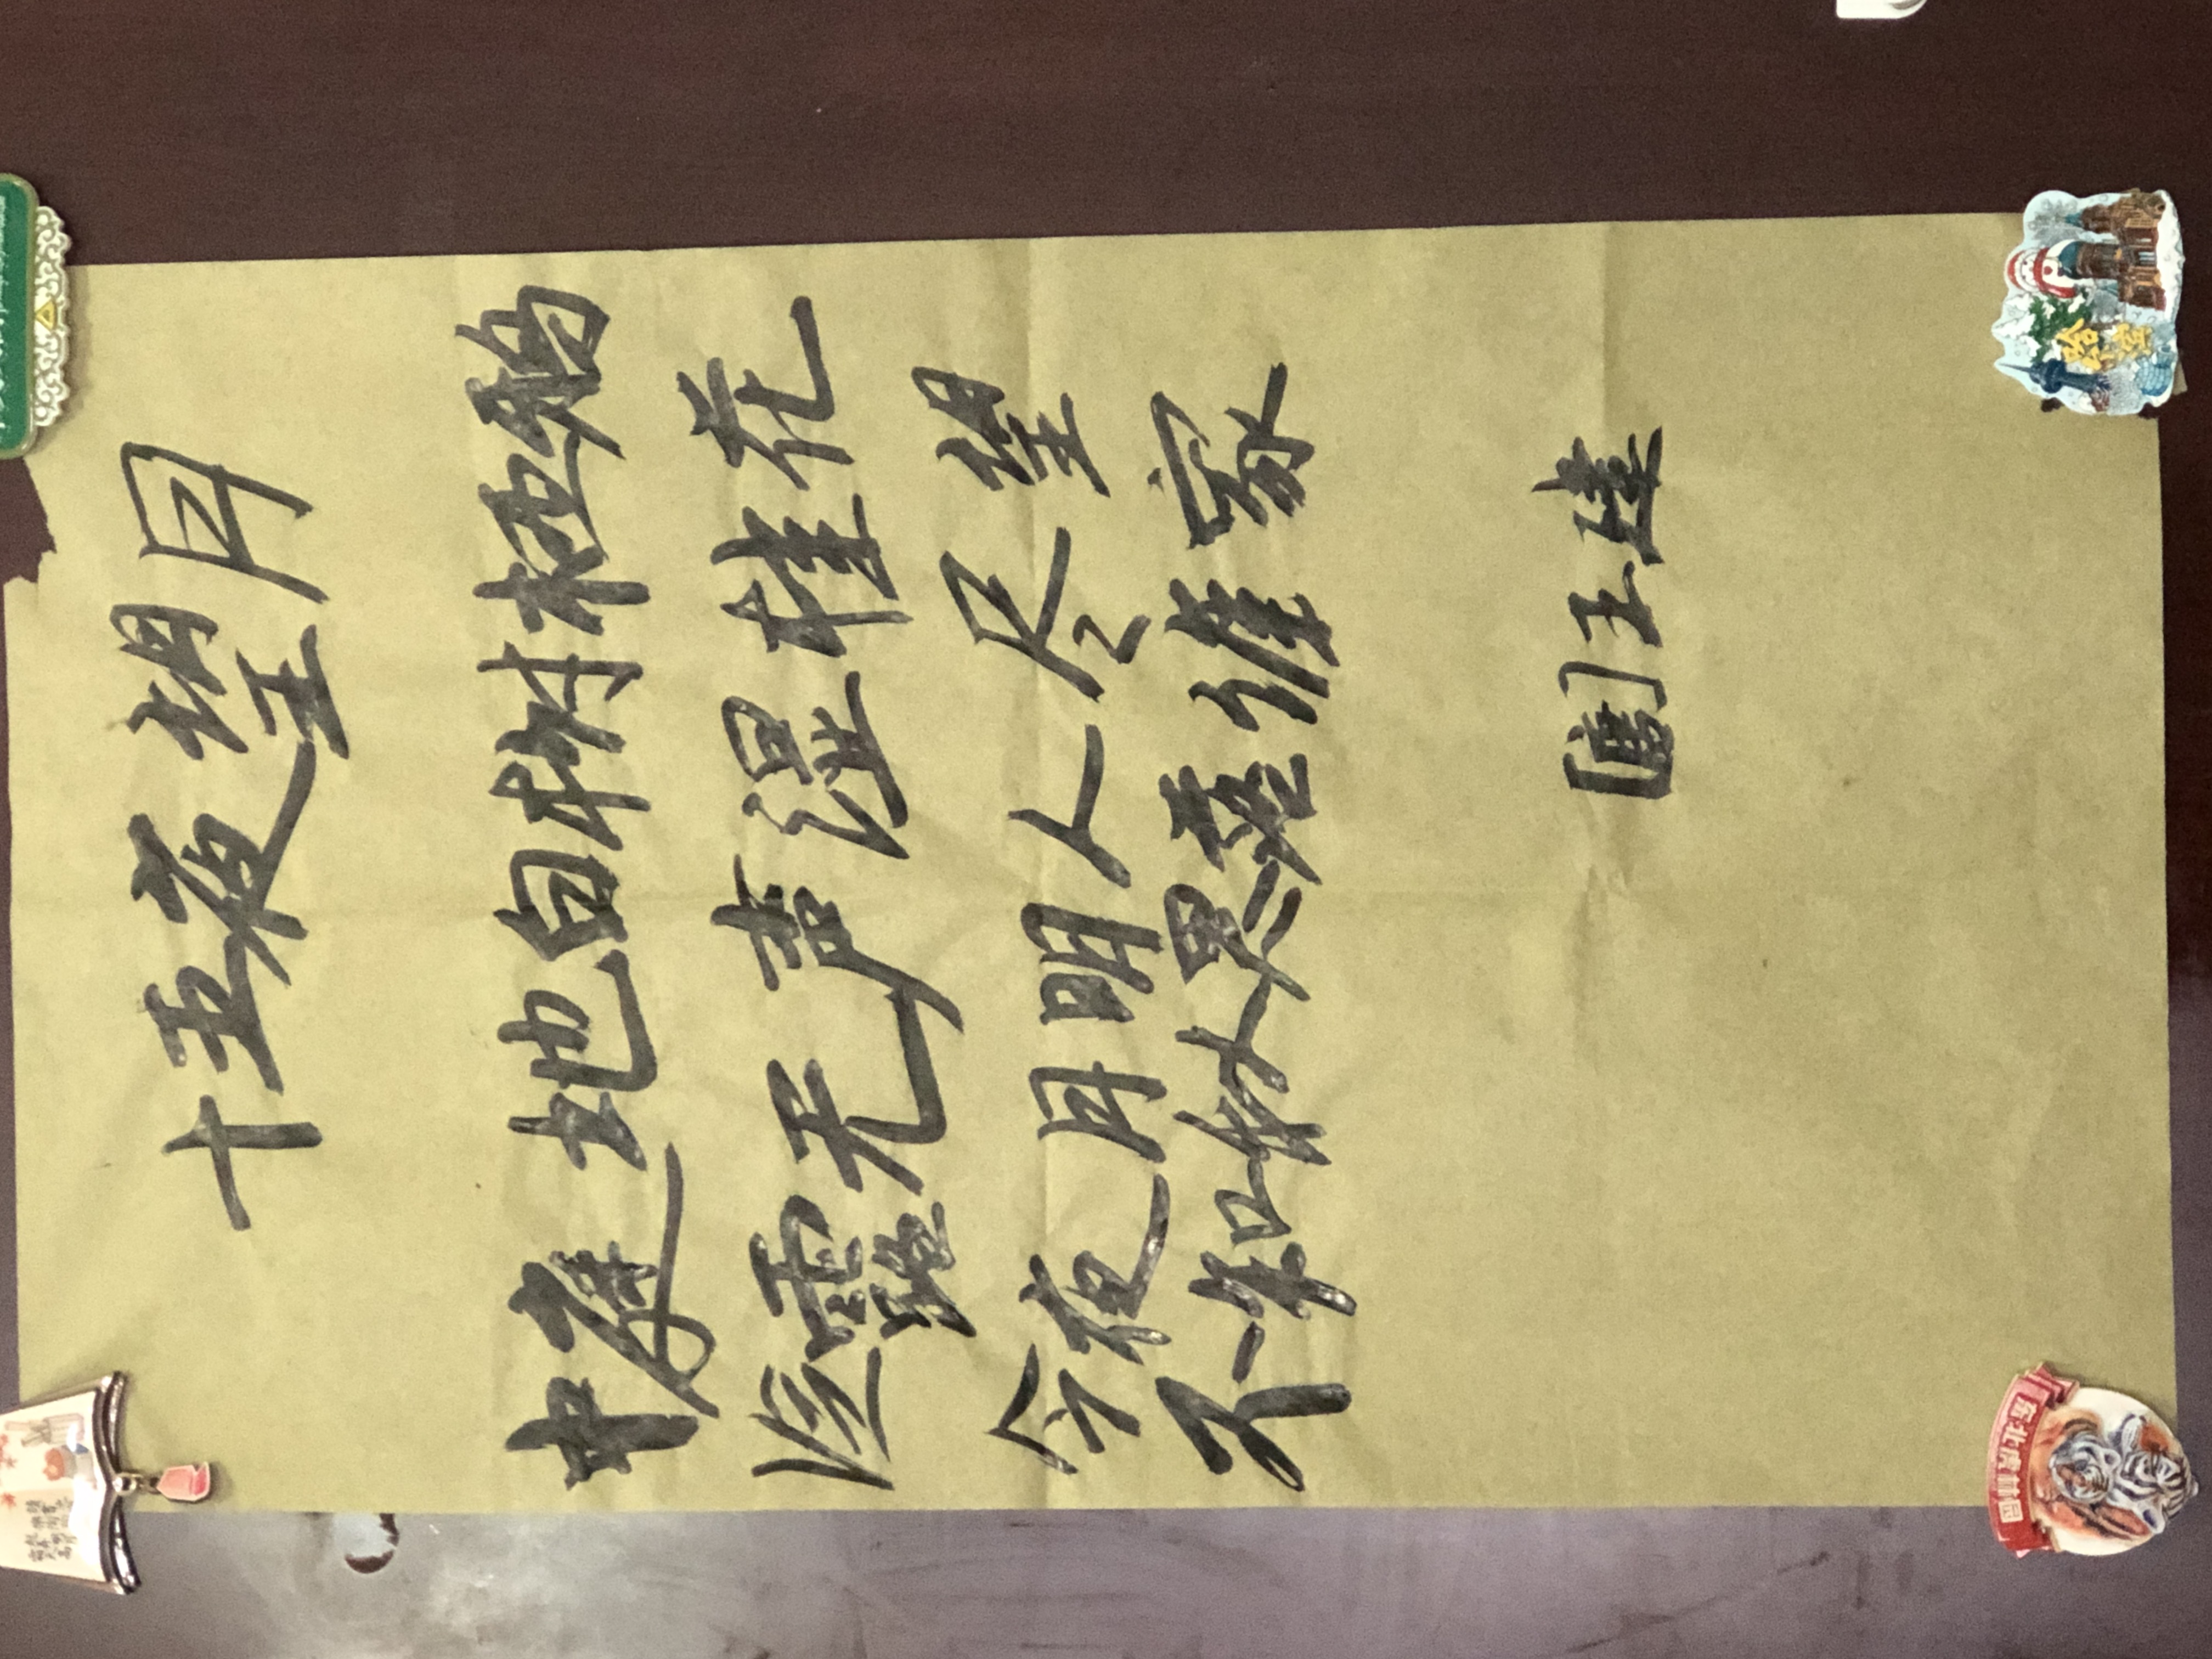 十五夜望月
中庭地白树栖鸦
冷露无声湿桂花
今夜月明人尽望
不知秋思落谁家
[唐]王建
东北虎林园
哈尔滨